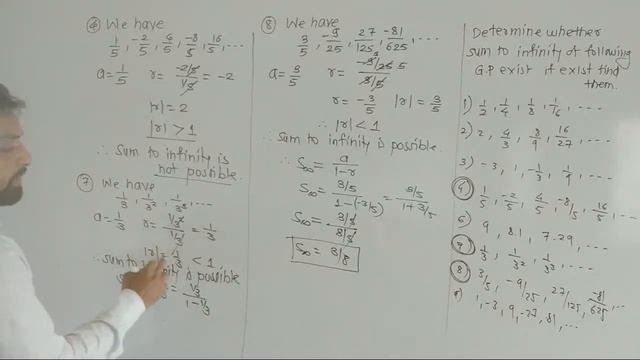 ④ We have
1/5, -2/5, 4/5, -8/5, 16/5, ...
a = 1/5 r = (-2/5)/(1/5) = -2
|r| = 2
|r| > 1
∴ Sum to infinity is
not possible.
⑦ We have
1/3, 1/3², 1/3³, ...
a = 1/3 r = (1/3²)/(1/3) = 1/3
|r| = 1/3 < 1
∴ sum to infinity is possible
= (1/3)/(1 - 1/3)
⑧ We have
3/5, -9/25, 27/125, -81/625, ...
a = 3/5 r = (-9/25)/(3/5)
r = -3/5 |r| = 3/5
∴ |r| < 1
∴ Sum to infinity is possible.
∴ S∞ = a/(1-r)
S∞ = (3/5)/(1-(-3/5)) = (3/5)/(1+3/5)
S∞ = (3/5)/(8/5)
S∞ = 3/8
Determine whether
sum to infinity of following
G.P exist if exist find
them.
1) 1/2, 1/4, 1/8, 1/16, ....
2) 2, 4/3, 8/9, 16/27, ....
3) -3, 1, -1/3, 1/9, ....
④ 1/5, -2/5, 4/5, -8/5, 16/5, ...
9, 8.1, 7.29, ...
⑦ 1/3, 1/3², 1/3³, ...
⑧ 3/5, -9/25, 27/125, -81/625, ...
1, -3, 9, -27, 81, ...